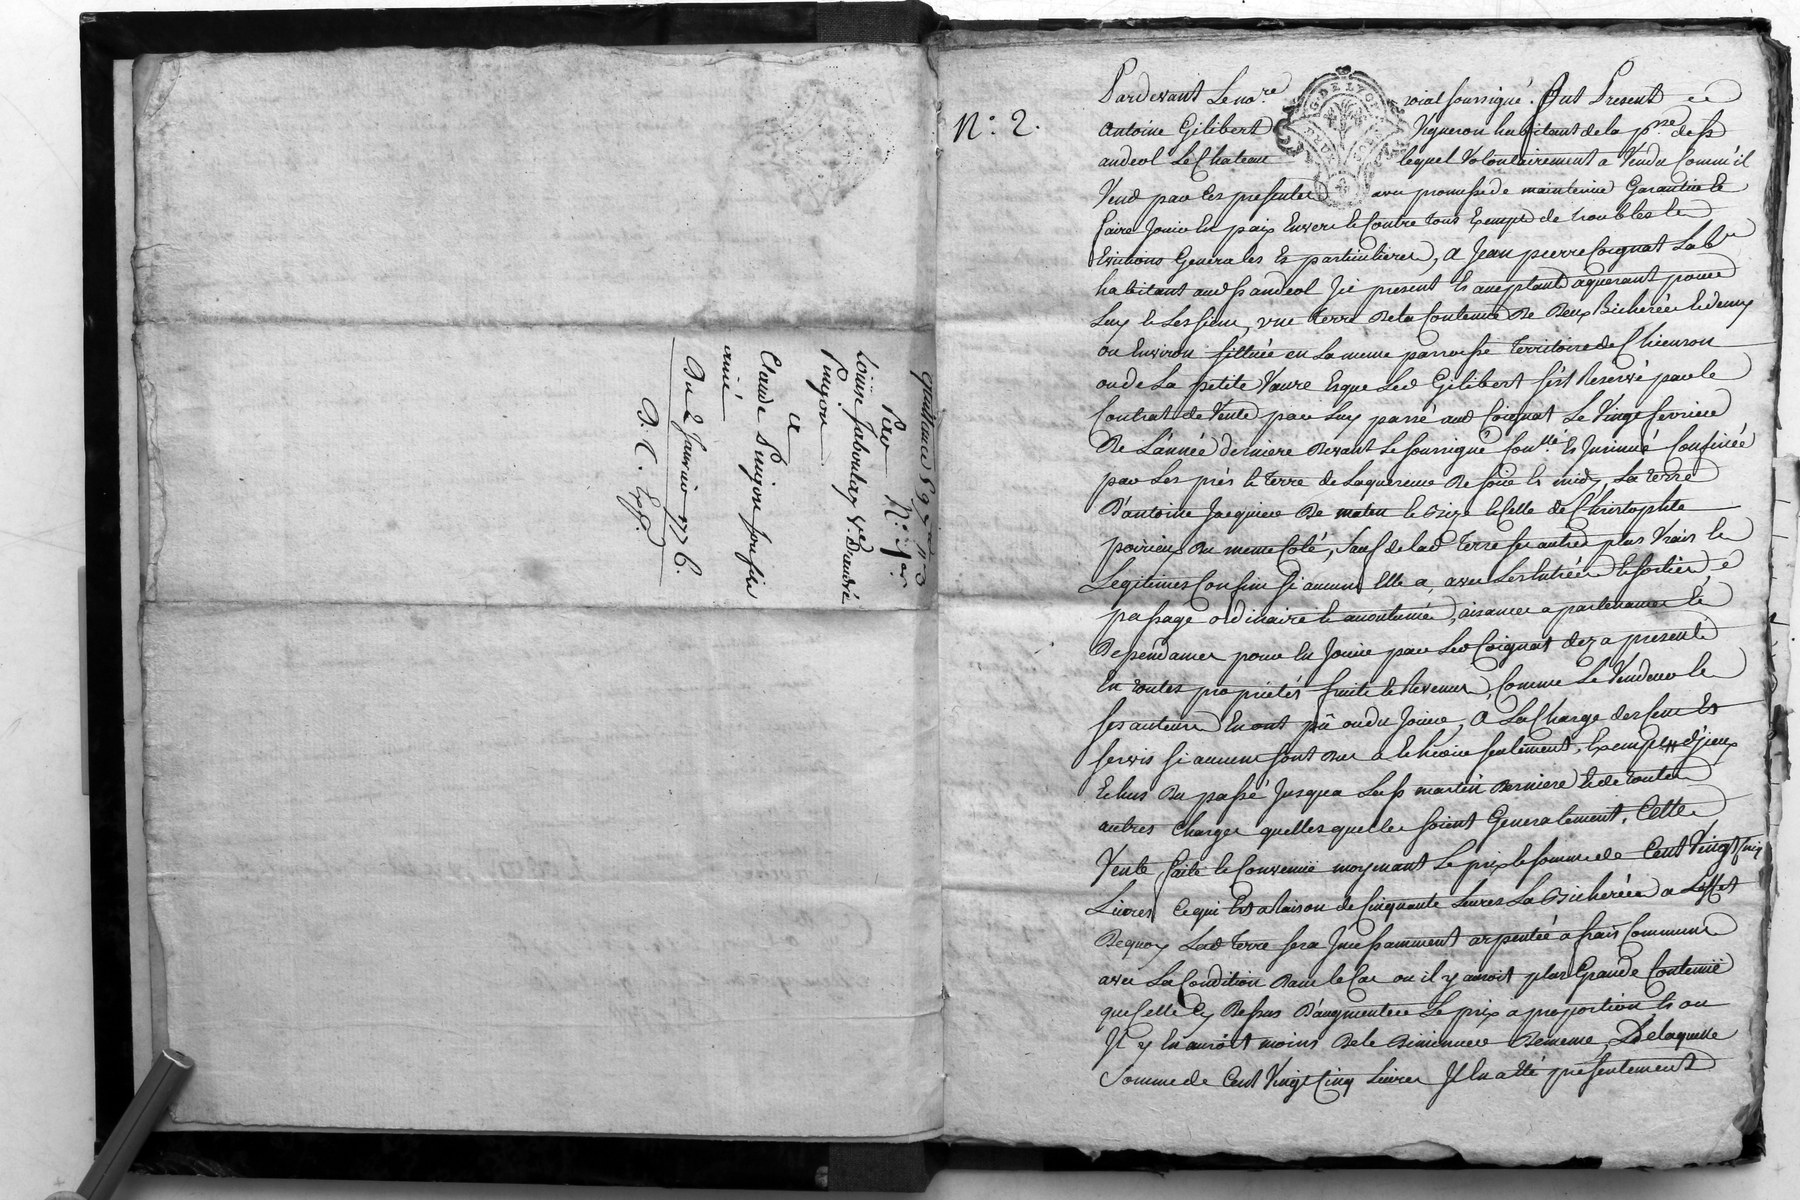 quittance
Par N.° 1.er
Louise Jaboulay v.e D'andré
Pinjon
a
Claude Pinjon son fils
ainé
Du 2 Janvier 1776.
D. C. Exp.
N.° 2.
G. DE LYON
DEUX SOLS
Pardevant Le no.re roial soussigné. fut Present
antoine Gilibert Vigneron habitant de la p.sse de st
andeol Le Chateau lequel Volontairement a Vendu Comm'il
Vend par Ces presentes avec promesse de maintenir Garantir et
faire Jouir En paix Envers et Contre tous Exempte de troubles et
Evictions Generales Et particulieres, a Jean pierre Coignat Lab.r
habitant aud st andeol Icy present et aceptant aquerant pour
Luy et Les siens, une terre De la Contenue De Deux Bicherées et demy
ou Environ sittuée en La meme parroisse territoire de Chieuron
ou de La petite Vaure Et que Led Gilibert s'est Reservé par le
Contrat de Vente par Luy passé aud Coignat Le Vingt fevrier
De L'année derniere Devant Le soussigné Con.lle Et Jnsinué Confinée
par Les prés et terre de Laquereur De soir et midy, La terre
D'antoine Jacquier De matin et Bize et Celle de Christophle
poirieux Du meme Coté, Sauf de lad terre ses autres plus Vrais et
Legitimes Confins si aucuns Elle a, avec Ses Entrées et sorties
passage ordinaire et acoutumé, aisances apartenances et
Dependances pour En Jouir par Led Coignat dez a present
En toutes proprietés fruits et Revenus, Comme Le Vendeur et
ses auteurs En ont pû ou du Jouir, a La Charge des Cens Et
servis si aucuns sont Dus a et hecoir seulement, Exempte d'jceux
Echus Du passé Jusqua La st martin Derniere Et de toutes
autres Charges quelles quelles soient Generalement, Cette
Vente faite et Convenüe moyenant Le prix et somme de Cent Vingt Cinq
Livres Ce qui Est a Raison de Cinquante Livres La Bicherée a L'effet
Dequoy Lad terre sera Jncessamment arpentée a frais Communs
avec La Condition Dans le Cas ou il y auroit plus Grande Contenüe
que Celle Cy Dessus D'augmenter Le prix a proportion et ou
Jl y En auroit moins De le Diminuer De meme, De laquelle
Somme de Cent Vingt Cinq Livres Jl En a Eté présentement